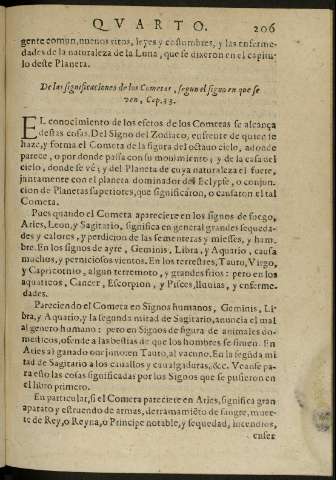 QVARTO. 206
gente comun, nueuos ritos, leyes y costumbres, y las enferme-
dades de la naturaleza de la Luna, que se dixeron en el capitu-
lo deste Planeta.
De las significaciones de los Cometas, segun el signo en que se
ven, Cap. 33.
EL conocimiento de los efetos de los Cometas se alcança
destas cosas. Del Signo del Zodiaco, enfrente de quien se
haze, y forma el Cometa de la figura del octauo cielo, adonde
parece, o por donde passa con su mouimiento; y de la casa del
cielo, donde se vè; y del Planeta de cuya naturaleza el fuere,
juntamente con el planeta dominador del Eclypse, o conjun-
cion de Planetas superiores, que significaron, o causaron el tal
Cometa.
Pues quando el Cometa apareciere en los signos de fuego,
Aries, Leon, y Sagitario, significa en general grandes sequeda-
des y calores, y perdicion de las sementeras y miesses, y ham-
bre. En los signos de ayre, Geminis, Libra, y Aquario, causa
muchos, y perniciosos vientos. En los terrestres, Tauro, Virgo,
y Capricornio, algun terremoto, y grandes frios: pero en los
aquaticos, Cancer, Escorpion, y Pisces, lluuias, y enferme-
dades.
Pareciendo el Cometa en Signos humanos, Geminis, Li-
bra, y Aquario, y la segunda mitad de Sagitario, anuncia el mal
al genero humano: pero en Signos de figura de animales do-
mesticos, ofende a las bestias de que los hombres se siruen. En
Aries al ganado ouejuno: en Tauro, al vacuno. En la segūda mi
tad de Sagitario a los cauallos y caualgaduras, &c. Veanse pa-
ra esto las cosas significadas por los Signos que se pusieron en
el libro primero.
En particular, si el Cometa pareciere en Aries, significa gran
aparato y estruendo de armas, derramamiēto de sangre, muer-
te de Rey, o Reyna, o Principe notable, y sequedad, incendios,
enfer